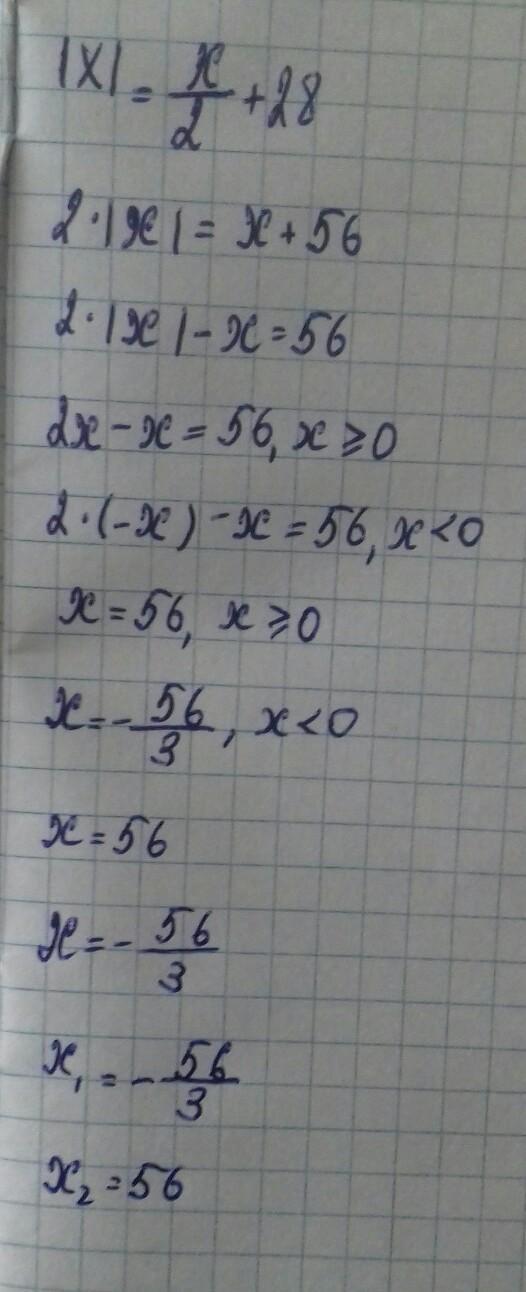 |x| = x/2 + 28
2·|x| = x + 56
2·|x| - x = 56
2x - x = 56, x ⩾ 0
2·(-x) - x = 56, x < 0
x = 56, x ⩾ 0
x = - 56/3, x < 0
x = 56
x = - 56/3
x₁ = - 56/3
x₂ = 56